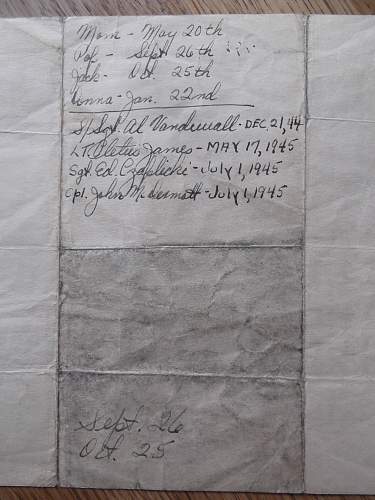 Mom - May 20th
Pop - Sept 26th
Jack - Oct. 25th
Anna - Jan. 22nd
S/Sgt. Al Vandewall - DEC, 21, 44
LT. Pletus James - MAY 17, 1945
Sgt. Ed. Czaplicki - July 1, 1945
Cpl. John McDermott - July 1, 1945
Sept. 26
Oct. 25